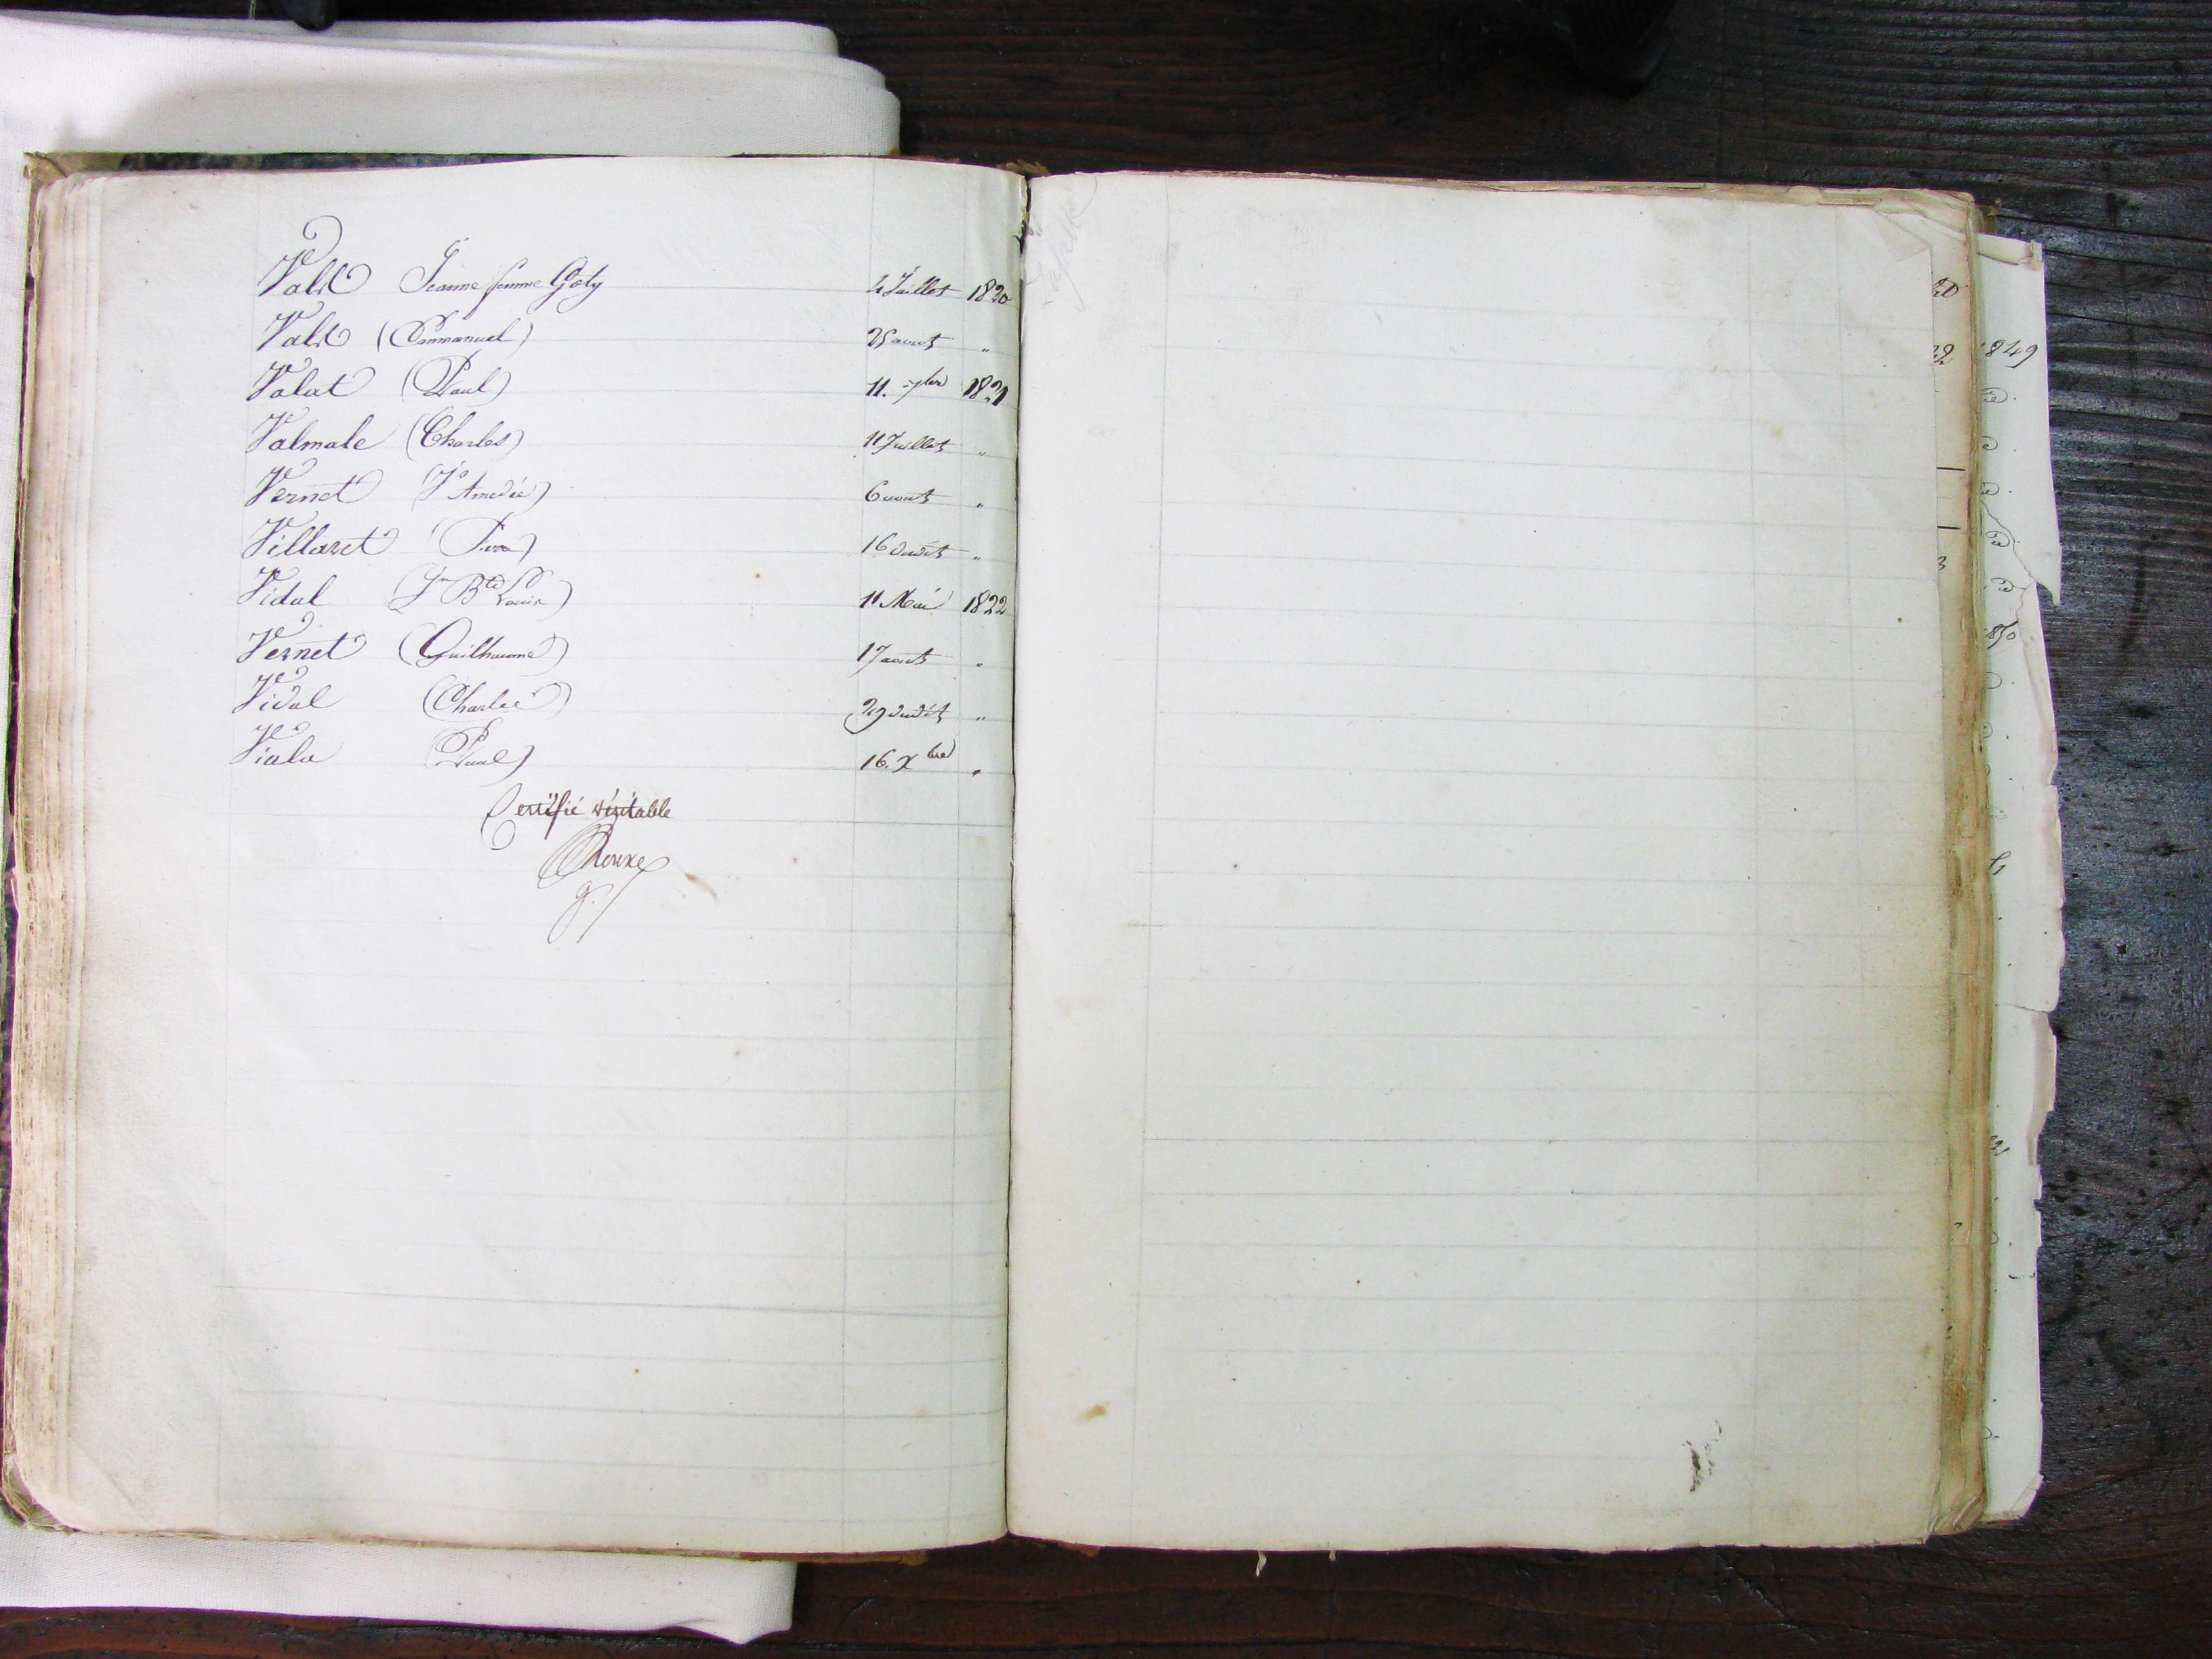 Jeanne femme Goty 4 Juillet 1820
(Emmanuel) 25 aout "
Valat (Paul) 11. 7bre 1821
Valmale (Charles) 11 Juillet "
Vernet (Jh Amedée) 6 aout "
Villaret (Pierre) 16 dudit "
Vidal (Jn Bte Louis) 11 Mai 1822
Vernet (Guilhaume) 17 aout "
Vidal (Charles) 29 dudit "
Viala (Paul) 16. Xbre "
Certifié véritable
1849
1850